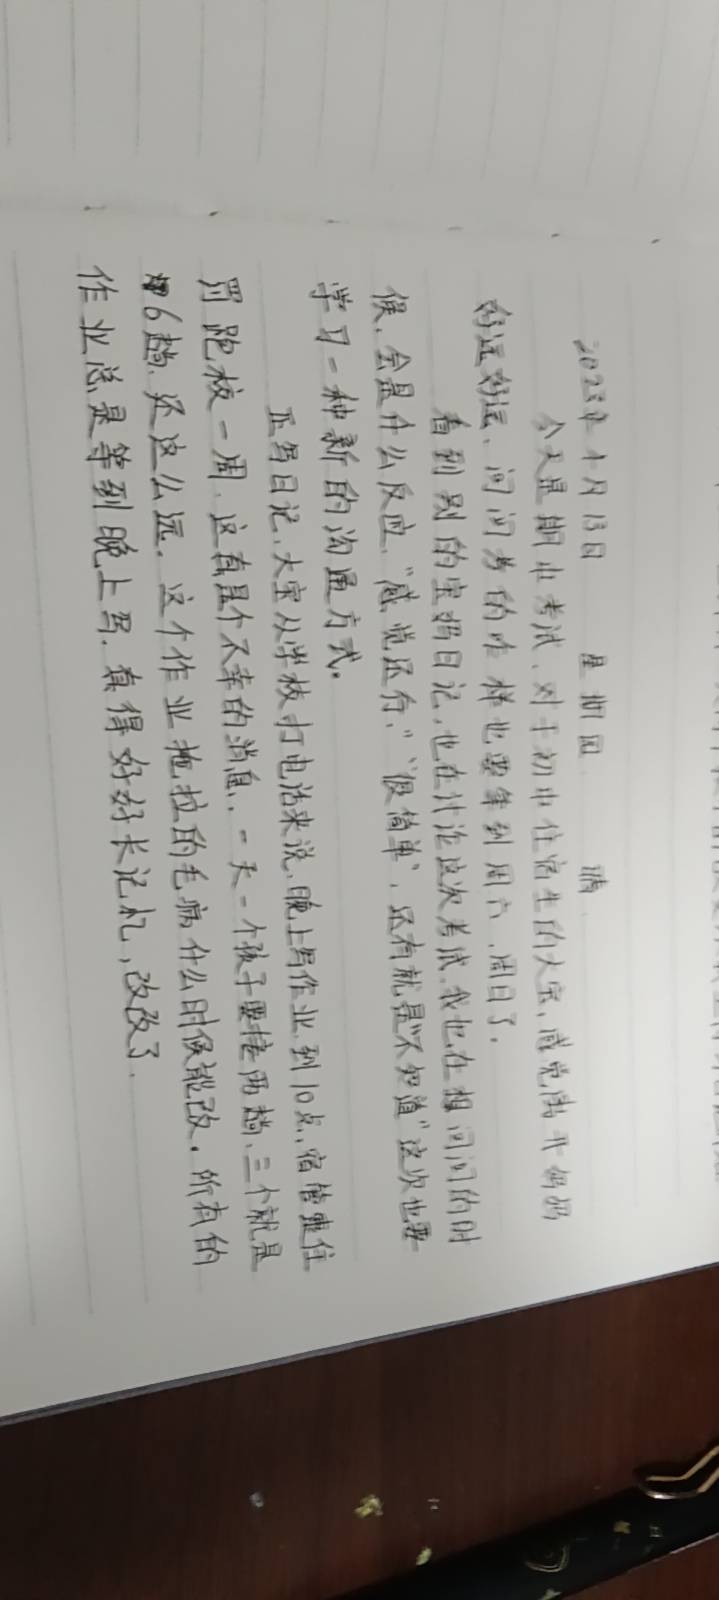 2025年1月13日 星期四 晴
今天是期中考试、对于初中住宿生的大宝，感觉离开妈妈
好远好远、问问考的咋样也要等到周六、周日了.
看到别的宝妈日记，也在讨论这次考试.我也在想问问的时
候、会是什么反应、“感觉还行”“很简单”，还有就是“不知道”这次也要
学习一种新的沟通方式。
正写日记、大宝从学校打电话来说、晚上写作业到10点，宿管
罚跑校一周、这真是个不幸的消息.一天一个孩子要接两趟、三个就是
6趟、还这么远、这个作业拖拉的毛病什么时候能改。所有的
作业总是等到晚上写、真得好好长记忆，改改了.